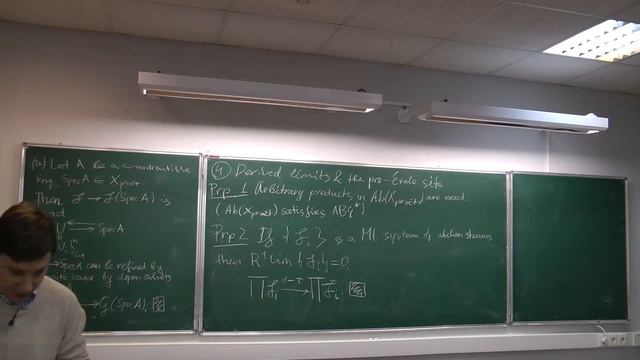 (a) Let A be a w-contractible
ring, Spec A ∈ X_proét
Then F → F(Spec A) is
→ Spec A
→ Spec A can be refined by
cover by clopen subsets
→ G(Spec A).
④ Derived limits & the pro-étale site
Prp 1 Arbitrary products in Ab(X_proét) are exact.
(Ab(X_proét) satisfies AB4*)
Prp 2 If {F_i} is a ML system of abelian sheaves
then R¹lim {F_i} = 0.
∏F_i →^{1-T} ∏F_i.